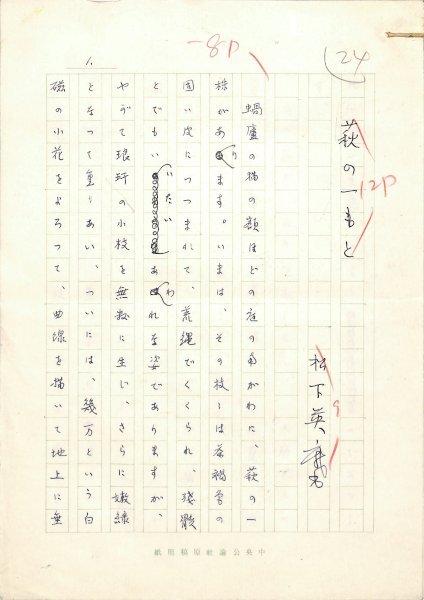 24
-8p
1.
萩の一もと
12p
松下英麿
9
蝸廬の猫の額ほどの庭の南がわに、萩の一
株があります。いまは、その枝々は茶褐色の
固い皮につつまれて、荒縄でくくられ、残骸
とでもいいたいあわれな姿でありますが、
やがて琅玕の小枝を無数に生じ、さらに嫩緑
となって重りあい、ついには、幾万という白
磁の小花をよろって、曲線を描いて地上に垂
中央公論社原稿用紙